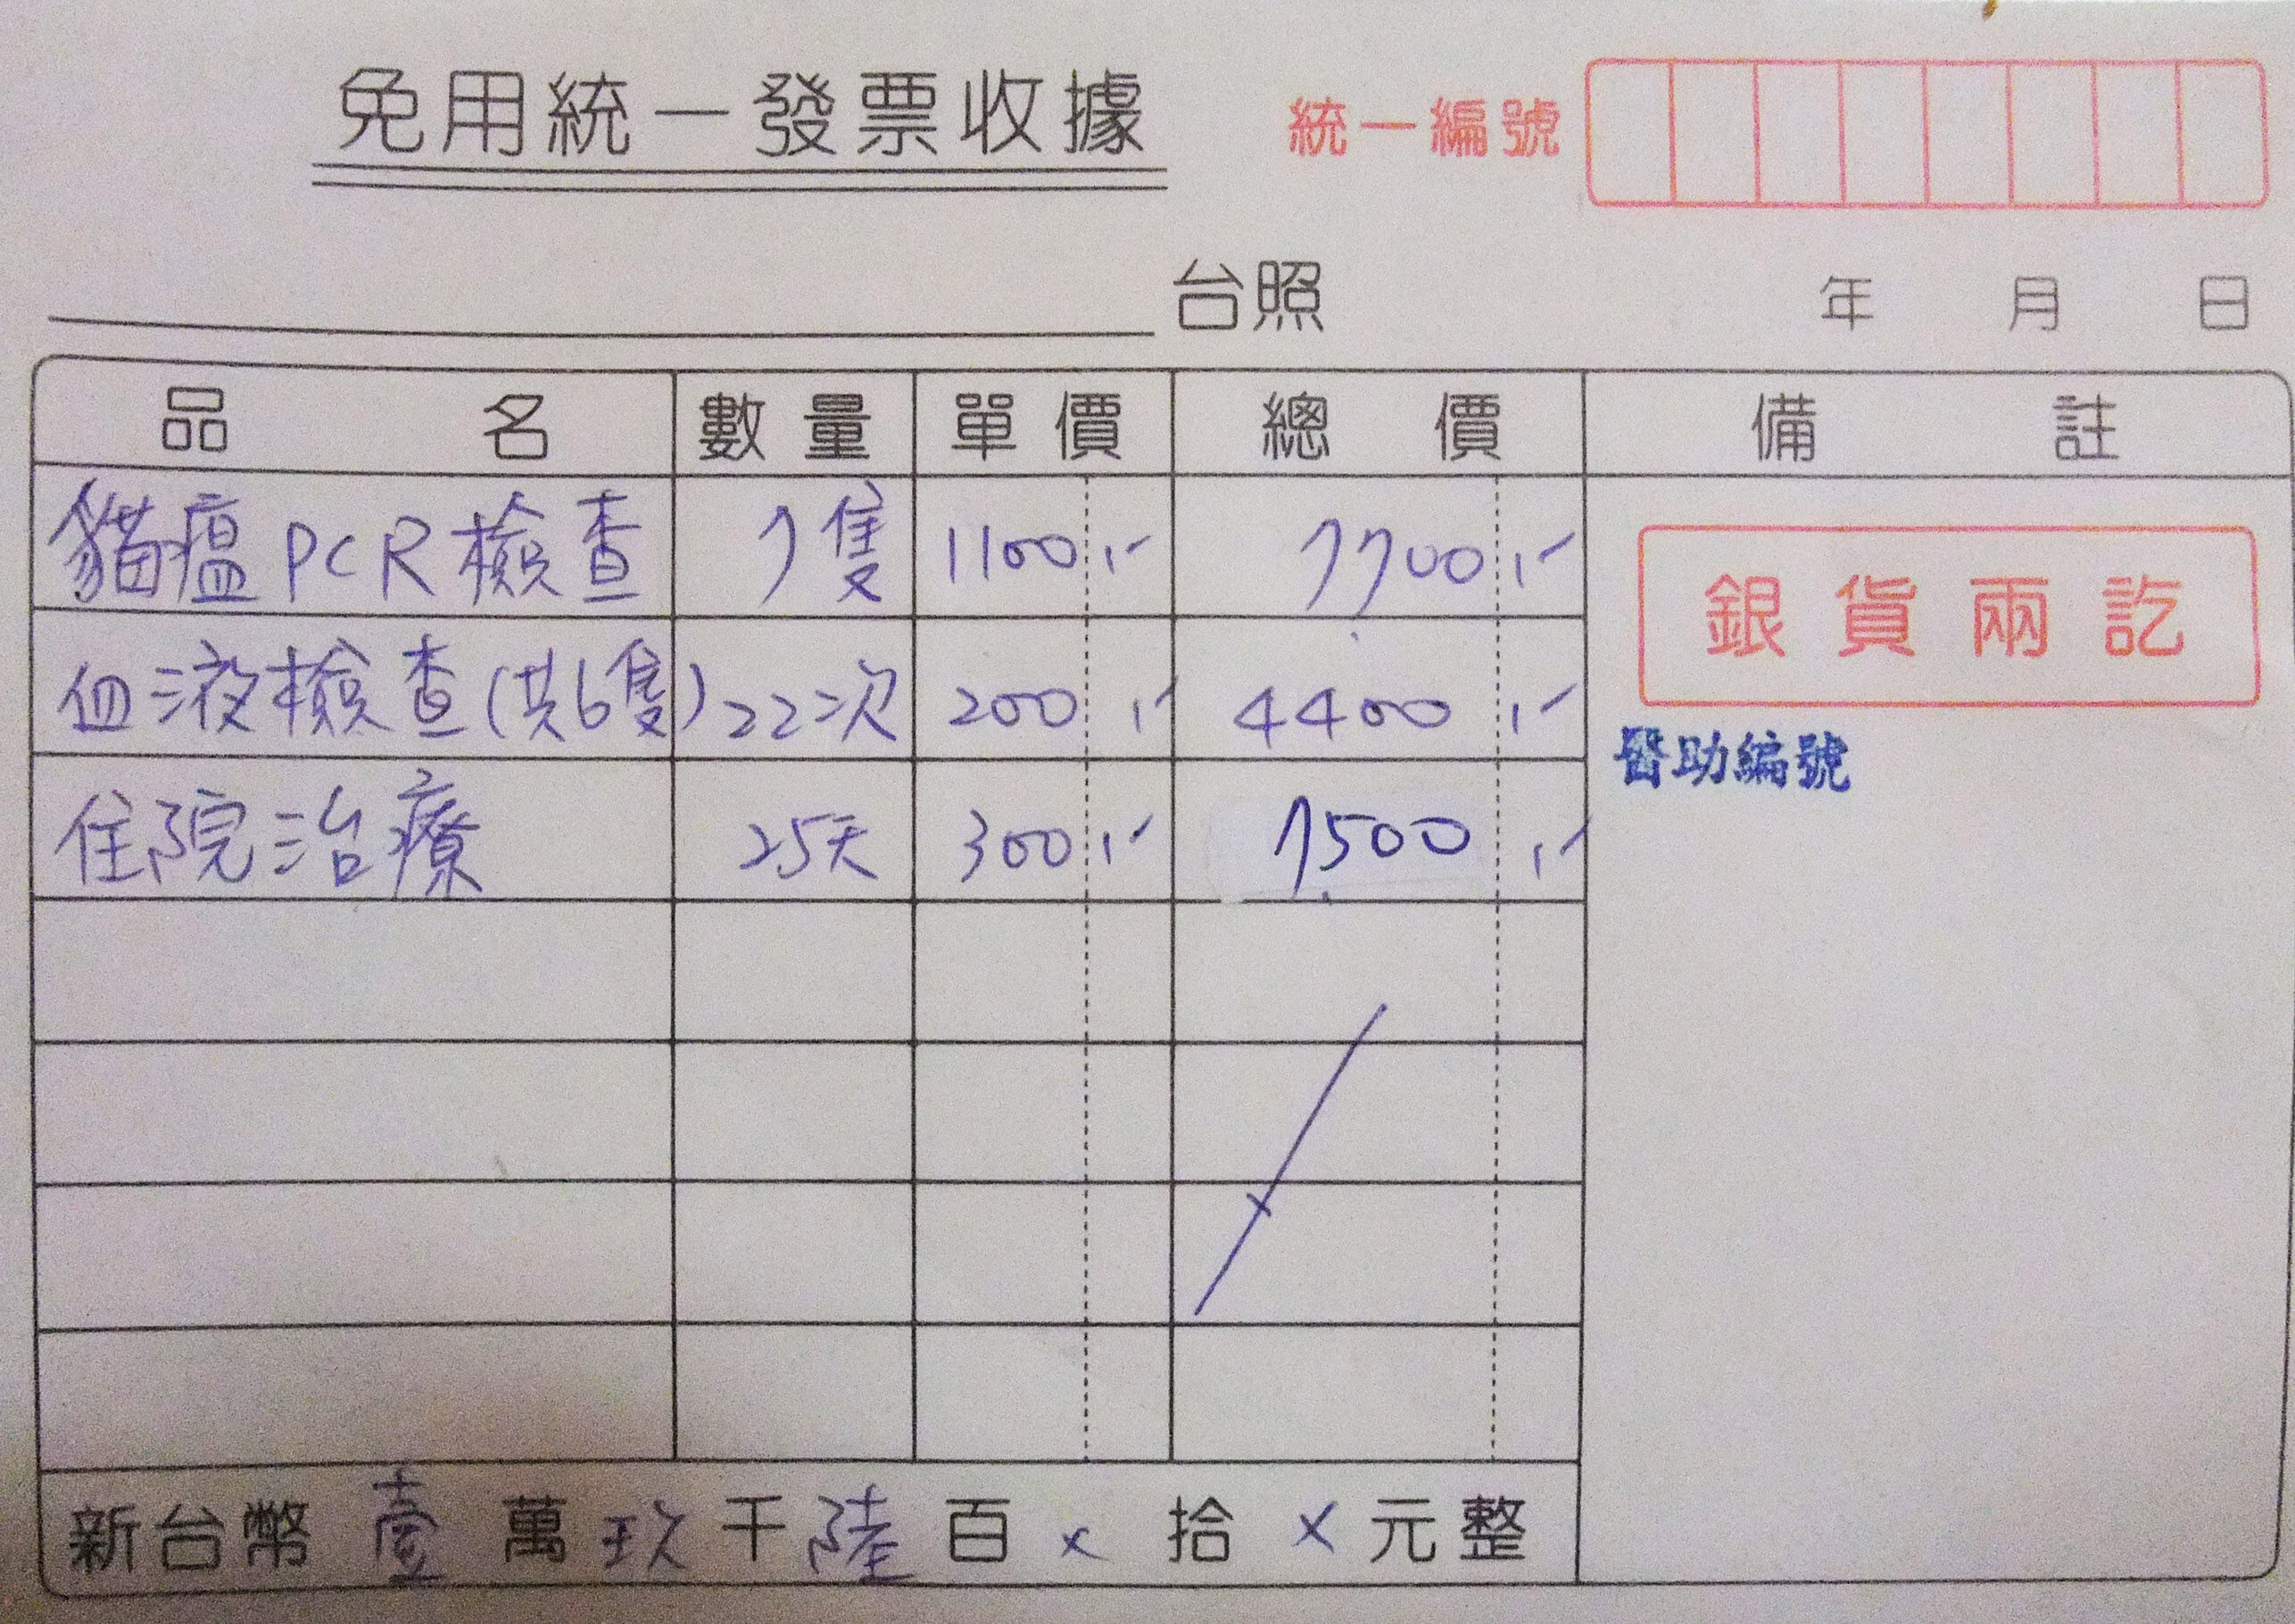 免用統一發票收據
統一編號
台照
年 月 日
品名 數量 單價 總價 備註
貓瘟PCR檢查 7隻 1100,- 7700,-
銀貨兩訖
血液檢查(共6隻) 22次 200,- 4400,-
醫助編號
住院治療 25天 300,- 7500,-
新台幣 壹 萬 玖 千 陸 百 x 拾 x 元整